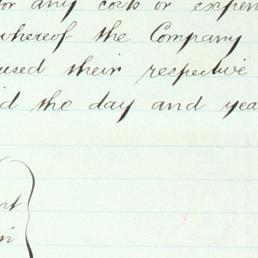 for any costs or expen
whereof the Company
used their respective
id the day and yea